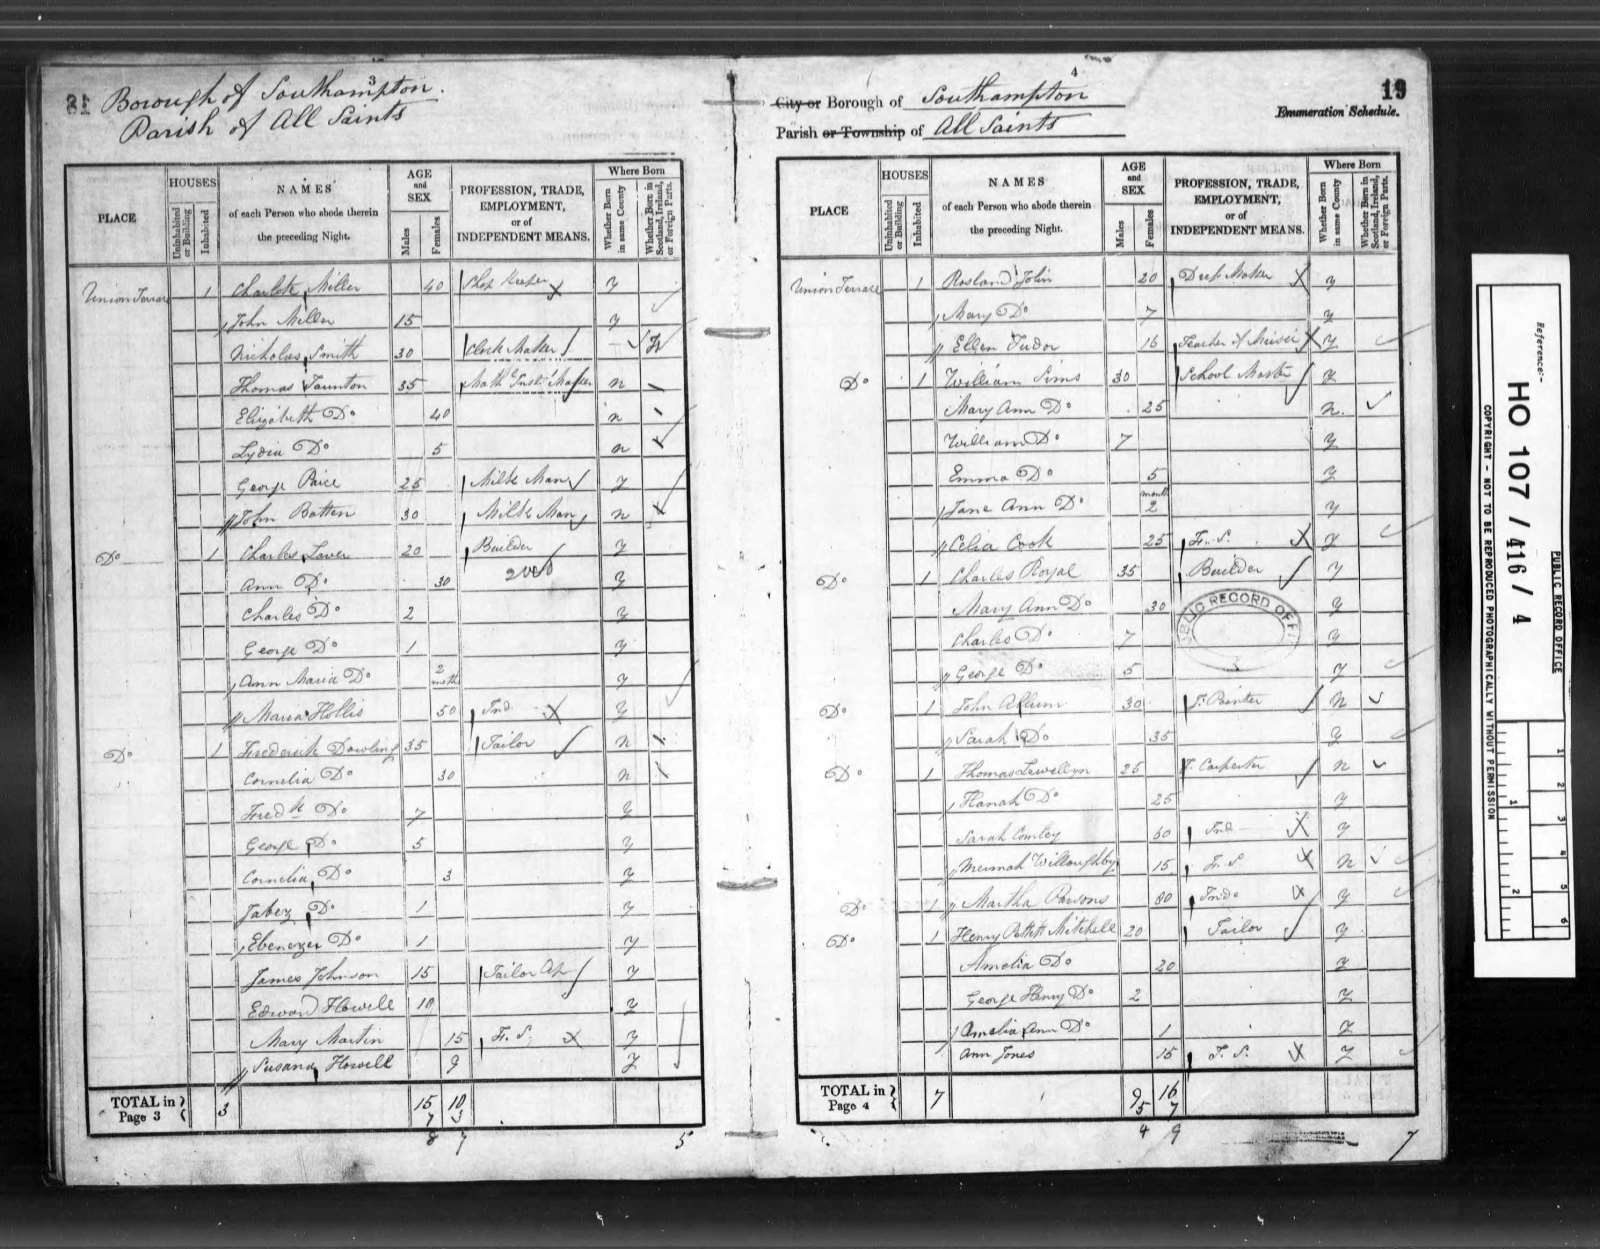 3
Borough of Southampton.
Parish of All Saints
PLACE
HOUSES
Uninhabited or Building
Inhabited
NAMES
of each Person who abode therein
the preceding Night.
AGE
and
SEX
Males
Females
PROFESSION, TRADE,
EMPLOYMENT,
or of
INDEPENDENT MEANS.
Where Born
Whether Born in same County
Whether Born in Scotland, Ireland, or Foreign Parts.
Union Terrace 1 Charlotte Miller 40 Shop Keeper y
John Miller 15 y
Nicholas Smith 30 Clock Maker
Thomas Taunton 35 Math Inst. Maker n
Elizabeth Do 40 n
Lydia Do 5 n
George Paice 25 Milk Man y
John Batten 30 Milk Man n
Do 1 Charles Lover 20 Builder y
Ann Do 30 y
Charles Do 2 y
George Do 1 y
Ann Maria Do 2 mths y
Maria Hollis 50 Ind y
Do 1 Frederick Dowling 35 Tailor n
Cornelia Do 30 n
Fredk Do 7 y
George Do 5 y
Cornelia Do 3 y
Jabez Do 1 y
Ebenezer Do 1 y
James Johnson 15 Tailor Ap y
Edward Howell 10 y
Mary Martin 15 F. S. y
Susana Howell 9 y
TOTAL in Page 3 3 15 10
7 3
8 7 5
4
19
City or Borough of Southampton
Enumeration Schedule.
Parish or Township of All Saints
PLACE
HOUSES
Uninhabited or Building
Inhabited
NAMES
of each Person who abode therein
the preceding Night.
AGE
and
SEX
Males
Females
PROFESSION, TRADE,
EMPLOYMENT,
or of
INDEPENDENT MEANS.
Where Born
Whether Born in same County
Whether Born in Scotland, Ireland, or Foreign Parts.
Union Terrace 1 John 20 Maker y
Mary Do 7 y
Ellen Tudor 16 Teacher of Music y
Do 1 William Sims 30 School Master y
Mary Ann Do 25 n
William Do 7 y
Emma Do 5 y
Jane Ann Do month 2 y
Celia Cook 25 F. S. y
Do 1 Charles Royal 35 Builder y
Mary Ann Do 30 y
Charles Do 7 y
George Do 5 y
Do 1 John Allum 30 J. Painter n
Sarah Do 35 y
Do 1 Thomas Lewellyn 25 J. Carpenter n
Hanah Do 25 y
Sarah Comley 60 Ind y
Willoughby 15 F. S n
Do 1 Martha Parsons 80 Ind. y
Do 1 Henry Mitchell 20 Tailor y
Amelia Do 20 y
George Henry Do 2 y
Amelia Ann Do 1 y
Ann Jones 15 F. S. y
TOTAL in Page 4 7 9 16
5 7
4 9 7
PUBLIC RECORD OFFICE
Reference:-
HO 107 / 416 / 4
PUBLIC RECORD OFFICE
COPYRIGHT - NOT TO BE REPRODUCED PHOTOGRAPHICALLY WITHOUT PERMISSION
1 2
1 2 3 4 5 6